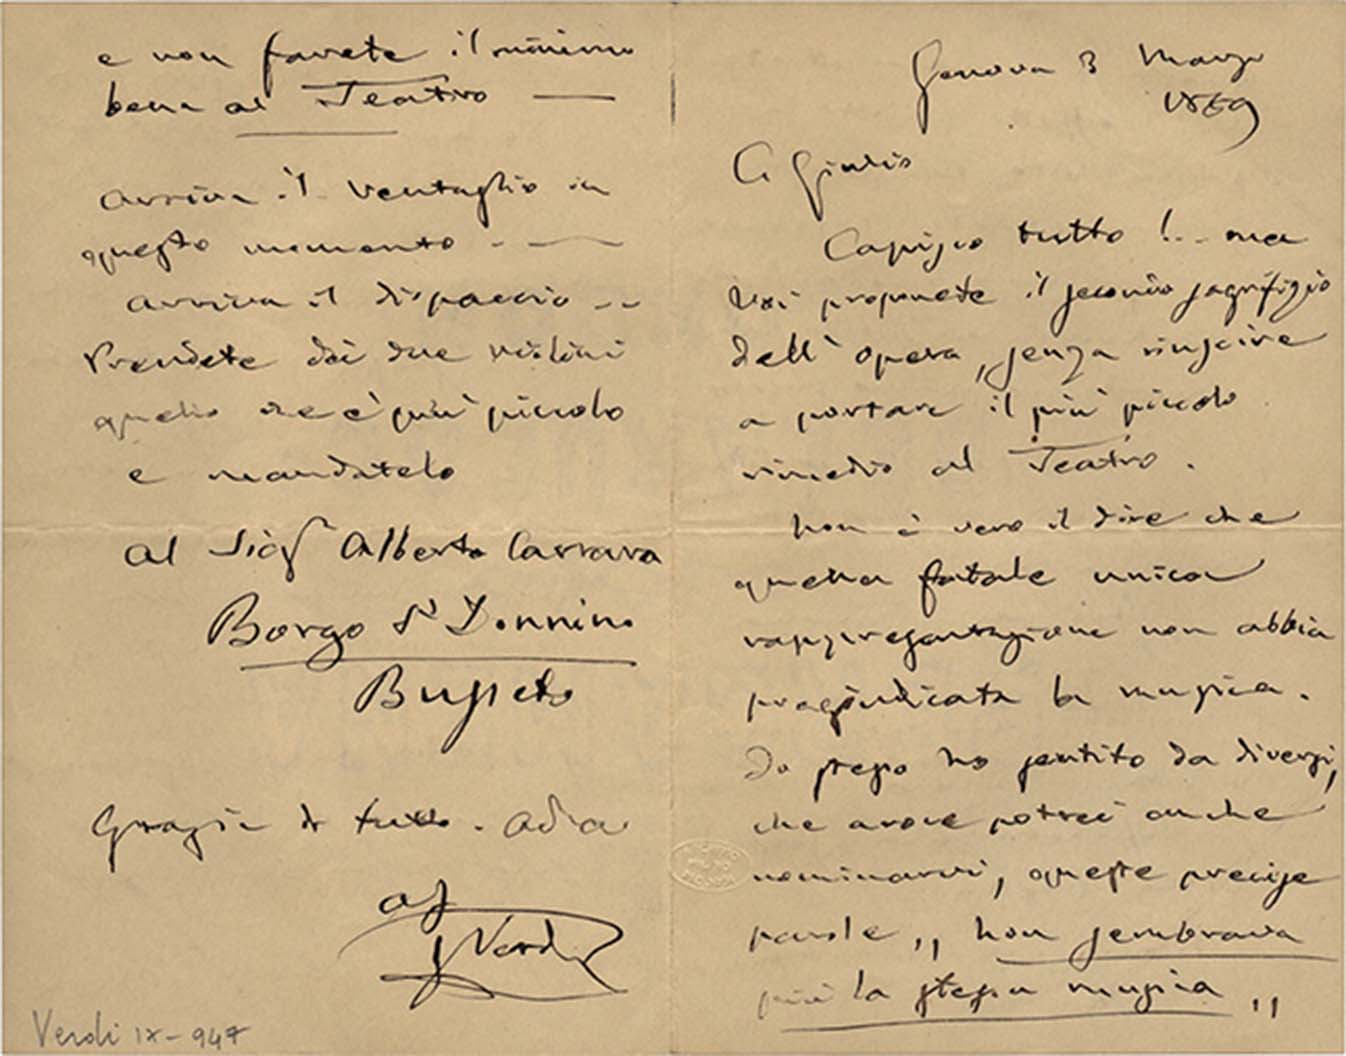 Genova 3 Marzo
1869
C Giulio
Capisco tutto!.. ma
Voi proponete il secondo sagrifizio
dell'opera, senza riuscire
a portare il più piccolo
rimedio al Teatro.
Non è vero il dire che
quella fatale unica
rappresentazione non abbia
pregiudicata la musica.
Io stesso ho sentito da diversi,
che a voce potrei anche
nominarvi, queste precise
parole ,, Non sembrava
più la stessa musica ,,
e non farete il minimo
bene al Teatro —
Arriva il Ventaglio in
questo momento - —
Arriva il dispaccio ..
Prendete dei due violini
quello che è più piccolo
e mandatelo
al Sigr Alberto Carrara
Borgo S Donnino
Busseto
Grazie di tutto. Addio
aff
G Verdi
Verdi IX - 947